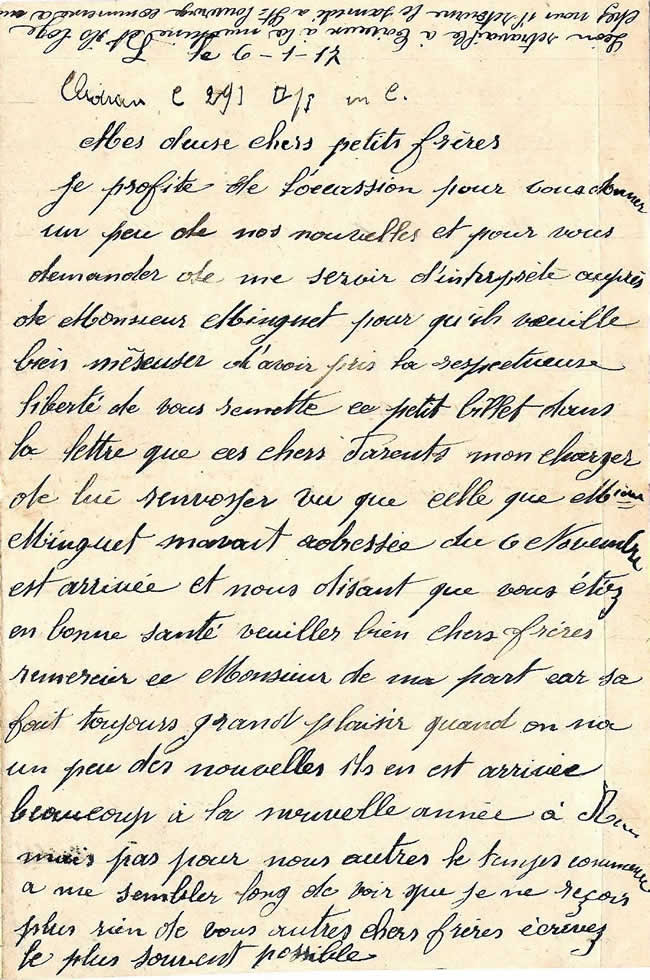 Léon retravaille à
à la
chez nous il retourne le samedi à
le 9-1-17
C 293
Mes deuse chers petits frères
je profite de l'ocassion pour vous donner
un peu de nos nouvelles et pour vous
demander de me servir d'intrepréte auprès
de Monsieur Minguet pour qu'ils veuille
bien m'éxcuser d'avoir pris la respectueuse
liberté de vous remettre ce petit billet dans
la lettre que ces chers Parents mon charger
de lui renvoyer vu que celle que Msieur
Minguet mavait adressée du 6 Novembre
est arrivée et nous disant que vous étiez
en bonne santé veuiller bien chers frères
remercier ce Monsieur de ma part car sa
fait toujours grand plaisir quand on na
un peu des nouvelles ils en est arrivée
beaucoup à la nouvelle année à
mais pas pour nous autres le temps commence
a me sembler long de voir que je ne reçois
plus rien de vous autres chers frères écrivez
le plus souvent possible